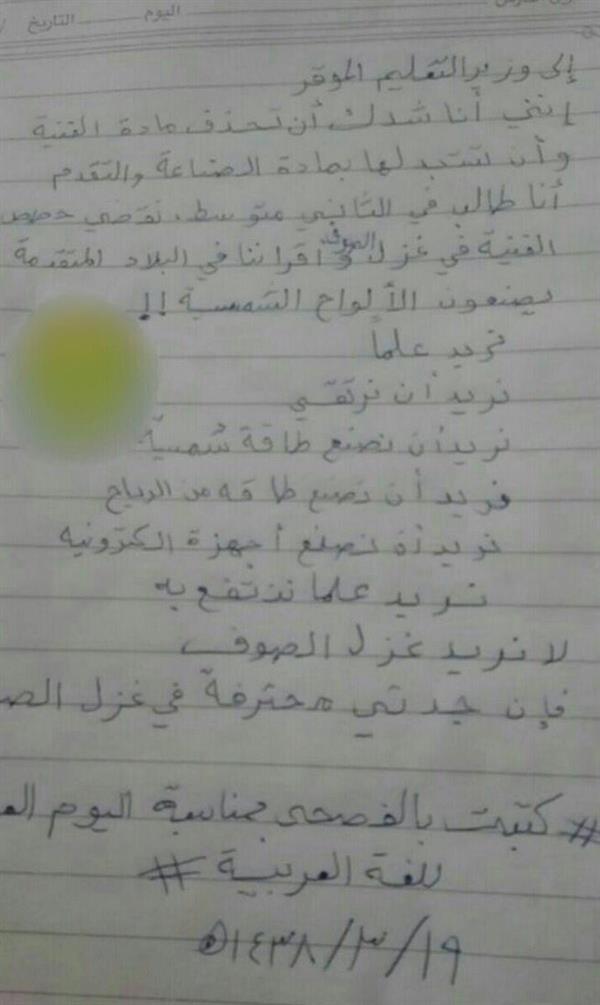 اليوم التاريخ
إلى وزير التعليم الموقر
إنني أناشدك أن تحذف مادة الفنية
وأن تستبدلها بمادة الصناعة والتقدم
أنا طالب في الثاني متوسط، نقضي حصص
الفنية في غزل الصوف و أقراننا في البلاد المتقدمة
يصنعون الألواح الشمسية !!
نريد علماً
نريد أن نرتقي
نريد أن نصنع طاقة شمسية
نريد أن نصنع طاقه من الرياح
نريد أن نصنع أجهزة الكترونيه
نريد علما ننتفع به
لا نريد غزل الصوف
فإن جدتي محترفة في غزل الص
# كتبت بالفصحى بمناسبة اليوم الع
للغة العربية #
١٤٣٨/٣/١٩ه